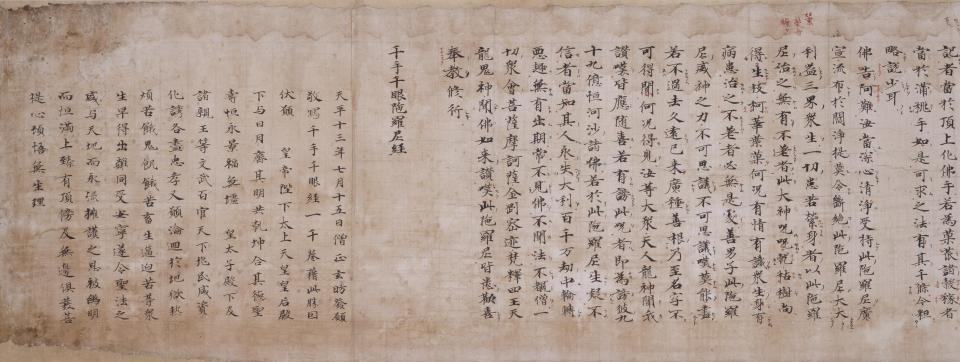 記者當於頂上化佛手若為菓蓏諸穀稼者
當於蒲桃手如是可求之法有其千條今粗
略說少耳
佛告阿難汝當深心清淨受持此陀羅尼廣
宣流布於閻浮提莫令斷絕此陀羅尼大大
利益三界眾生一切患苦縈身者以此陀羅
尼治之無有不差者此大神呪呪乾枯樹尚
得生枝柯華葉菓何況有情有識眾生身有
病患治之不差者必無是處善男子此陀羅
尼威神之力不可思議不可思議嘆莫能盡
若不過去久遠已來廣種善根乃至名字不
可得聞何況得見汝等大眾天人龍神聞我
讚嘆皆應隨喜若有謗此呪者即為謗彼九
十九億恒河沙諸佛若於此陀羅尼生疑不
信者當知其人永失大利百千万劫中輪轉
惡趣無有出期常不見佛不聞法不覩僧一
切眾會菩薩摩訶薩金剛密迹梵釋四王天
龍鬼神聞佛如來讚嘆此陀羅尼皆悉歡喜
奉教修行
千手千眼陀羅尼經
天平十三年七月十五日僧正玄昉發願
敬寫千手千眼經一千卷藉此勝因
伏願 皇帝陛下太上天皇皇后殿
下与日月齊其明共乾坤合其德聖
壽恒永景福無壃 皇太子殿下及
諸親王等文武百官天下兆民咸資
化誘各盡忠孝又願淪回於地獄熱
煩苦餓鬼飢餓苦畜生逼迫苦等眾
生早得出離同受安寧遂令聖法之
盛与天地而永流擁護之恩被幽明
而恒滿上臻有頂傍及無邊俱發菩
提心頓悟無生理